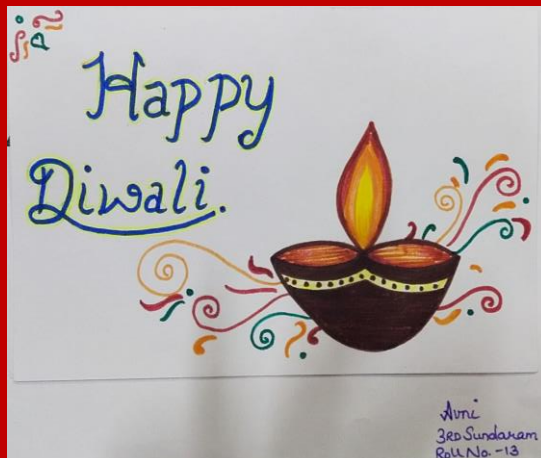 Happy
Diwali.
Avni
3RD Sundaram
Roll No. -13